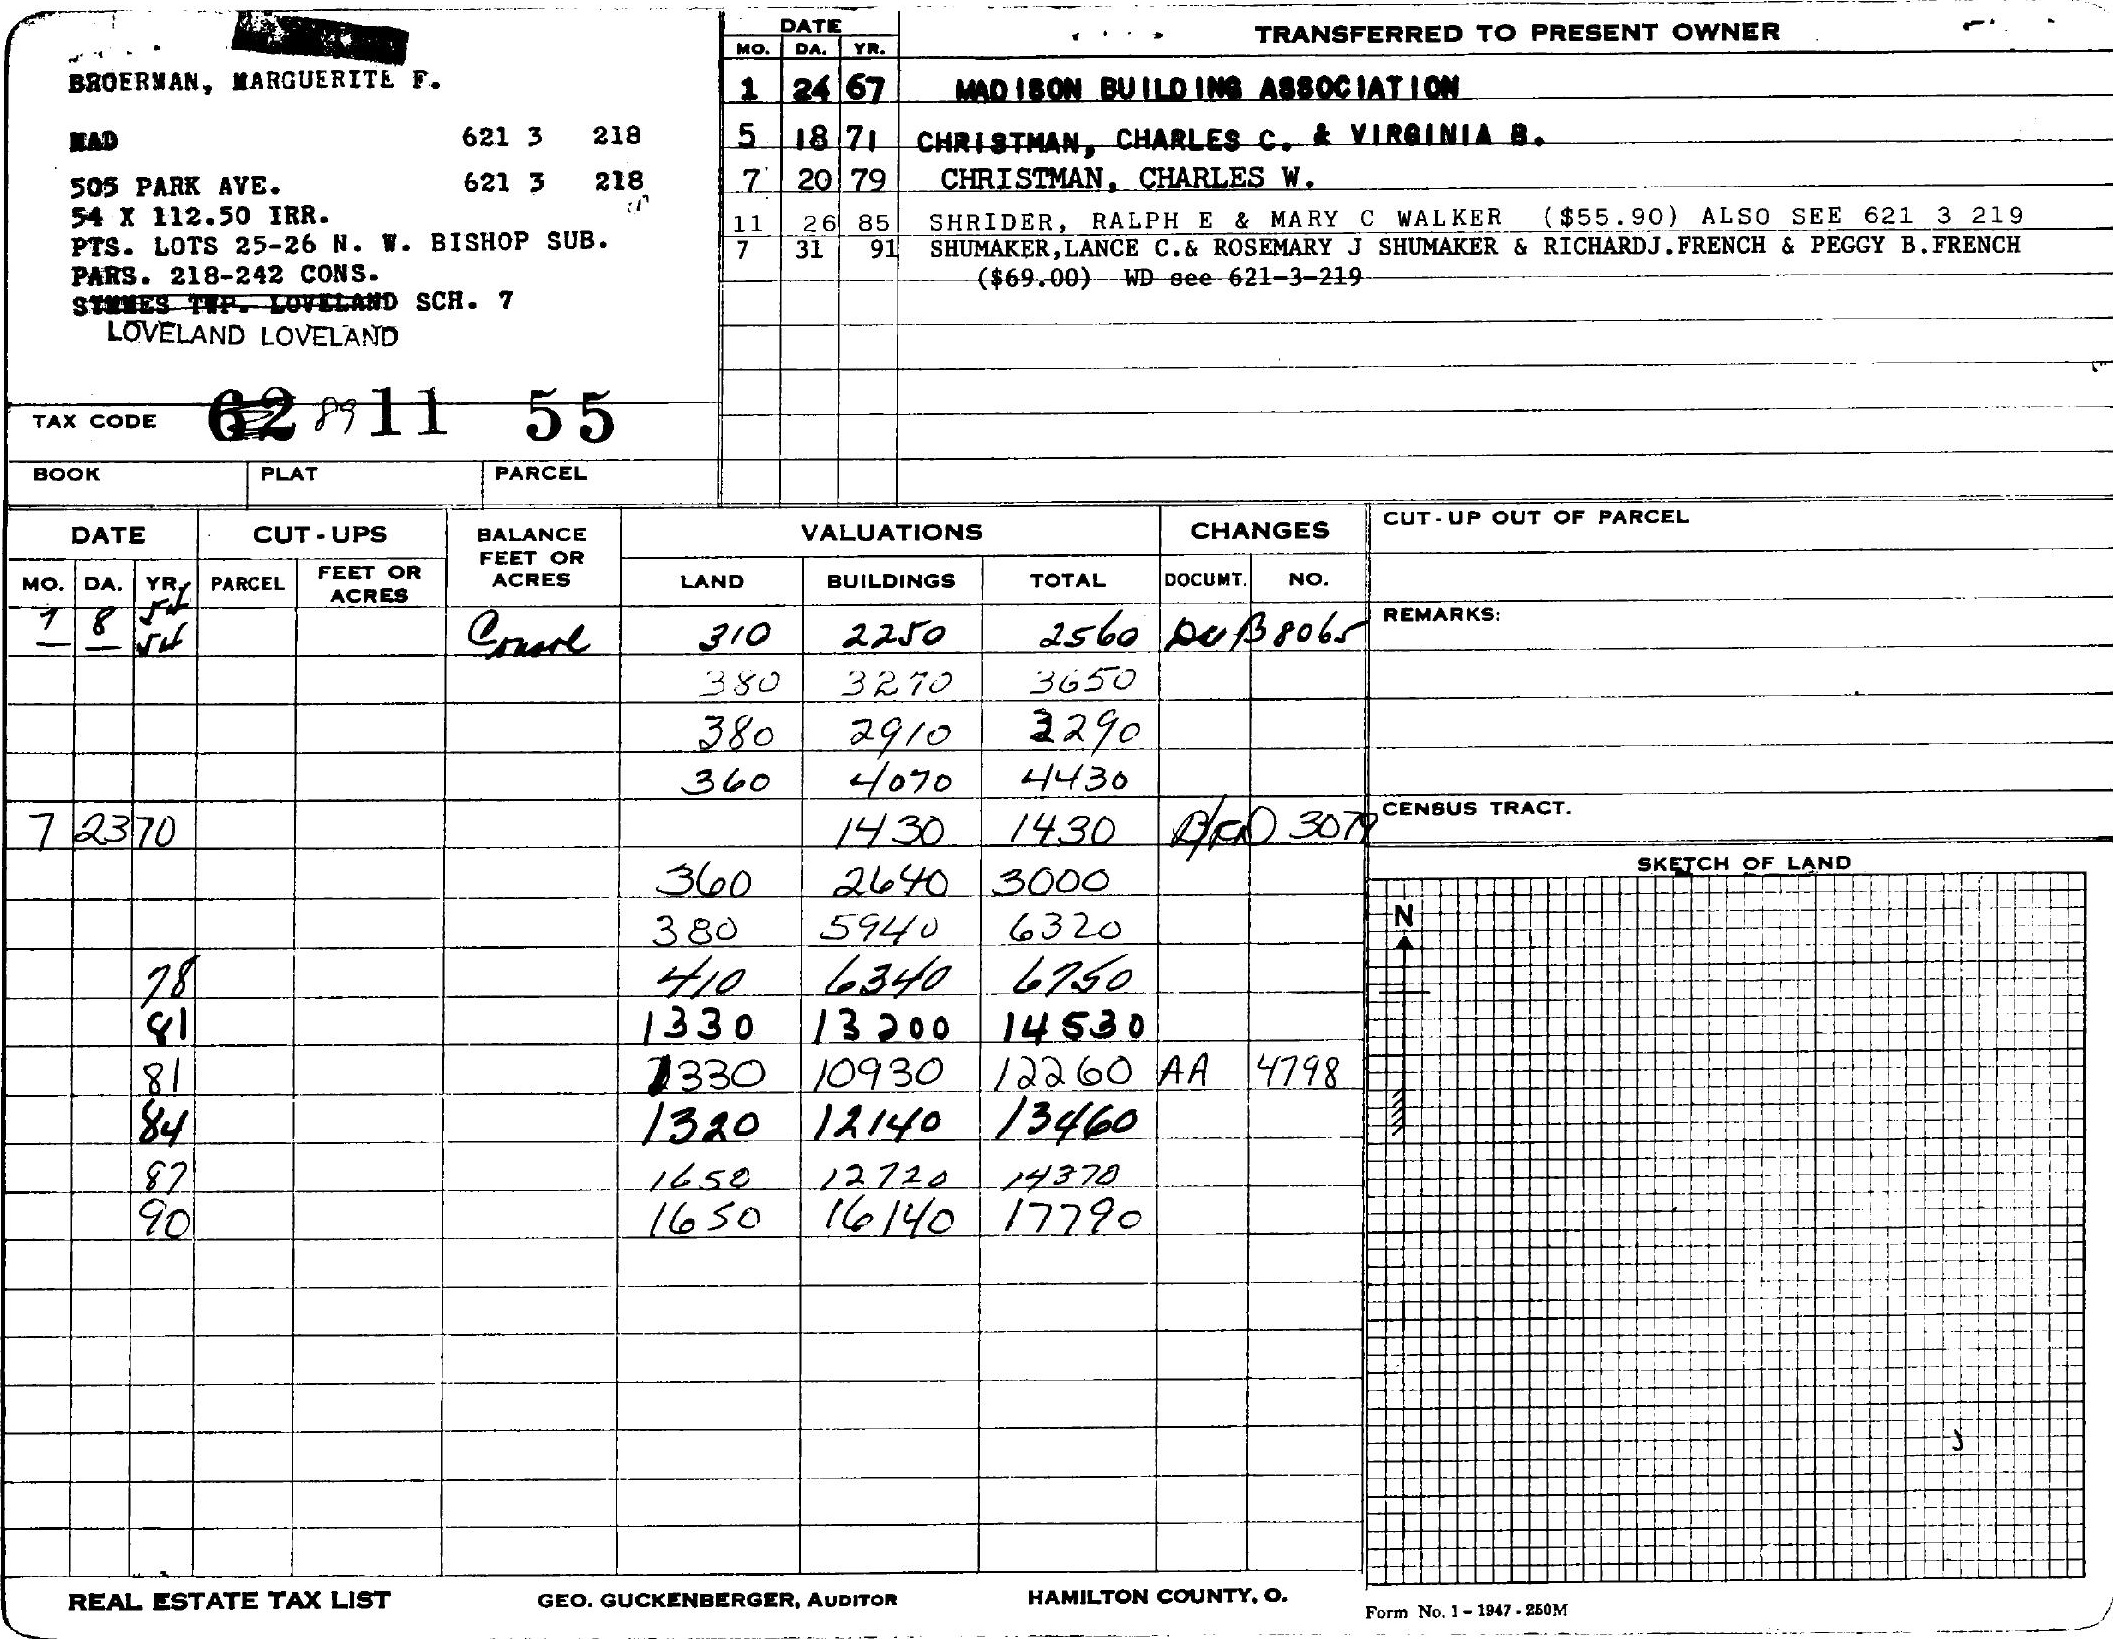 BROERMAN, MARGUERITE F.
MAD 621 3 218
505 PARK AVE. 621 3 218
54 X 112.50 IRR.
PTS. LOTS 25-26 N. W. BISHOP SUB.
PARS. 218-242 CONS.
SYMMES TWP. LOVELAND SCH. 7
LOVELAND LOVELAND
TAX CODE 62 89 11 55
BOOK PLAT PARCEL
DATE TRANSFERRED TO PRESENT OWNER
MO. DA. YR.
1 24 67 MADISON BUILDING ASSOCIATION
5 18 71 CHRISTMAN, CHARLES C. & VIRGINIA B.
7 20 79 CHRISTMAN, CHARLES W.
11 26 85 SHRIDER, RALPH E & MARY C WALKER ($55.90) ALSO SEE 621 3 219
7 31 91 SHUMAKER,LANCE C.& ROSEMARY J SHUMAKER & RICHARDJ.FRENCH & PEGGY B.FRENCH
($69.00) WD see 621-3-219
DATE CUT-UPS BALANCE FEET OR ACRES VALUATIONS CHANGES
MO. DA. YR. PARCEL FEET OR ACRES LAND BUILDINGS TOTAL DOCUMT. NO.
54
7 8 54 Consol 310 2250 2560 8065
380 3270 3650
380 2910 3290
360 4070 4430
7 23 70 1430 1430 3079
360 2640 3000
380 5940 6320
78 410 6340 6750
81 1330 13200 14530
81 1330 10930 12260 AA 4798
84 1320 12140 13460
87 1650 12720 14370
90 1650 16140 17790
CUT-UP OUT OF PARCEL
REMARKS:
CENSUS TRACT.
SKETCH OF LAND
N
REAL ESTATE TAX LIST GEO. GUCKENBERGER, AUDITOR HAMILTON COUNTY, O.
Form No. 1-1947-250M